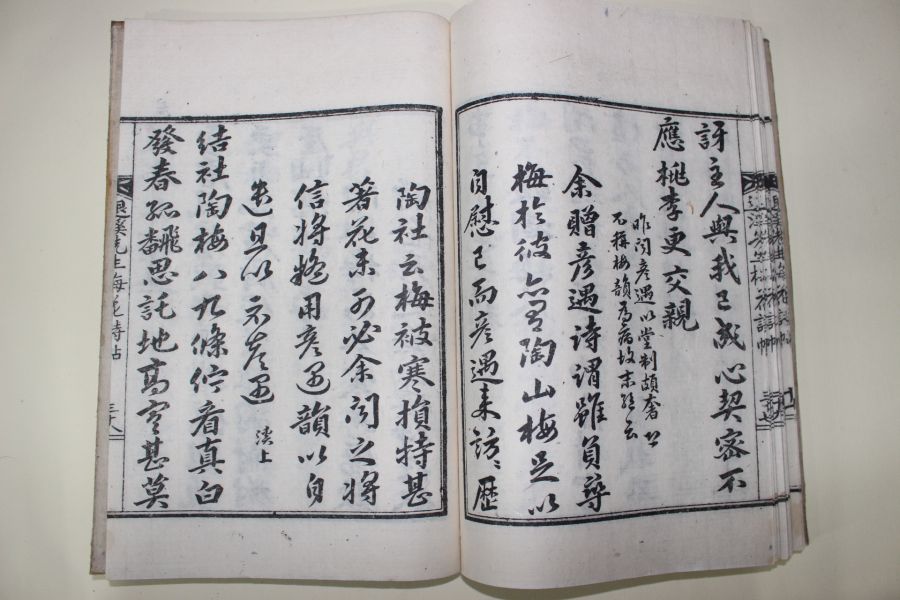 訝主人與我已成心契密不
應桃李更交親
昨聞彦遇以堂制頗奢
不稱梅韻為病故末云
余贈彦遇诗謂雖負尋
梅於彼亦有陶山梅足以
自慰已而彦遇来訪歴
陶社云梅被寒損特甚
著花未可必余聞之將
信將疑用彦遇韻以自
遣且以示彦遇
溪上
結社陶梅八九條佇看真白
發春孤飜思託地高寒甚莫
退溪先生梅花诗帖
三十八